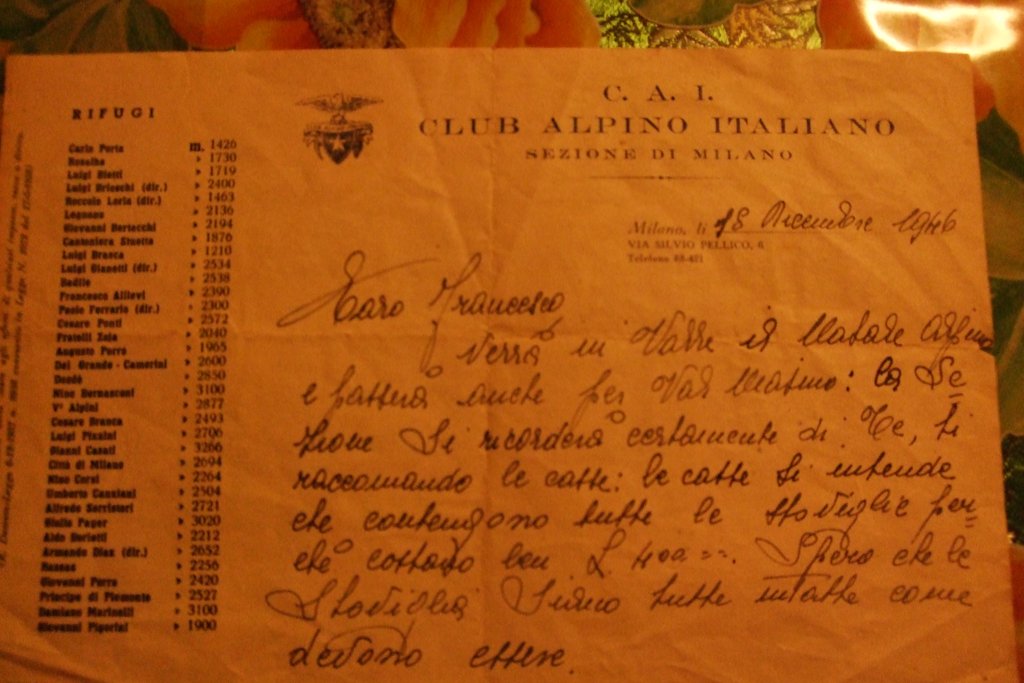 RIFUGI
Carlo Porta m. 1426
Rosalba » 1730
Luigi Bietti » 1719
Luigi Brioschi (dir.) » 2400
Roccolo Loria (dir.) » 1463
Legnone » 2136
Giovanni Bertacchi » 2194
Cantoniera Stuetta » 1876
Luigi Brasca » 1210
Luigi Gianetti (dir.) » 2534
Badile » 2538
Francesco Allievi » 2390
Paolo Ferrario (dir.) » 2300
Cesare Ponti » 2572
Fratelli Zoja » 2040
Augusto Porro » 1965
Del Grande - Camerini » 2600
Dosdè » 2850
Nino Bernasconi » 3100
V° Alpini » 2877
Cesare Branca » 2493
Luigi Pizzini » 2706
Gianni Casati » 3266
Città di Milano » 2694
Nino Corsi » 2264
Umberto Canziani » 2504
Alfredo Serristori » 2721
Giulio Payer » 3020
Aldo Borletti » 2212
Armando Diaz (dir.) » 2652
» 2256
Giovanni Porro » 2420
Principe di Piemonte » 2527
Damiano Marinelli » 3100
Giovanni Pigorini » 1900
C. A. I.
CLUB ALPINO ITALIANO
SEZIONE DI MILANO
Milano, li 18 Dicembre 1946
VIA SILVIO PELLICO, 6
Telefono 88-421
Caro Francesco
Verrà in Valle il Natale Alpino
e passerà anche per Val Masino: la Se=
zione si ricorderà certamente di Te, ti
raccomando le casse: le casse si intende
che contengono tutte le stoviglie per=
chè costano ben L. 400 ==. Spero che le
Stoviglie siano tutte intatte come
devono essere.